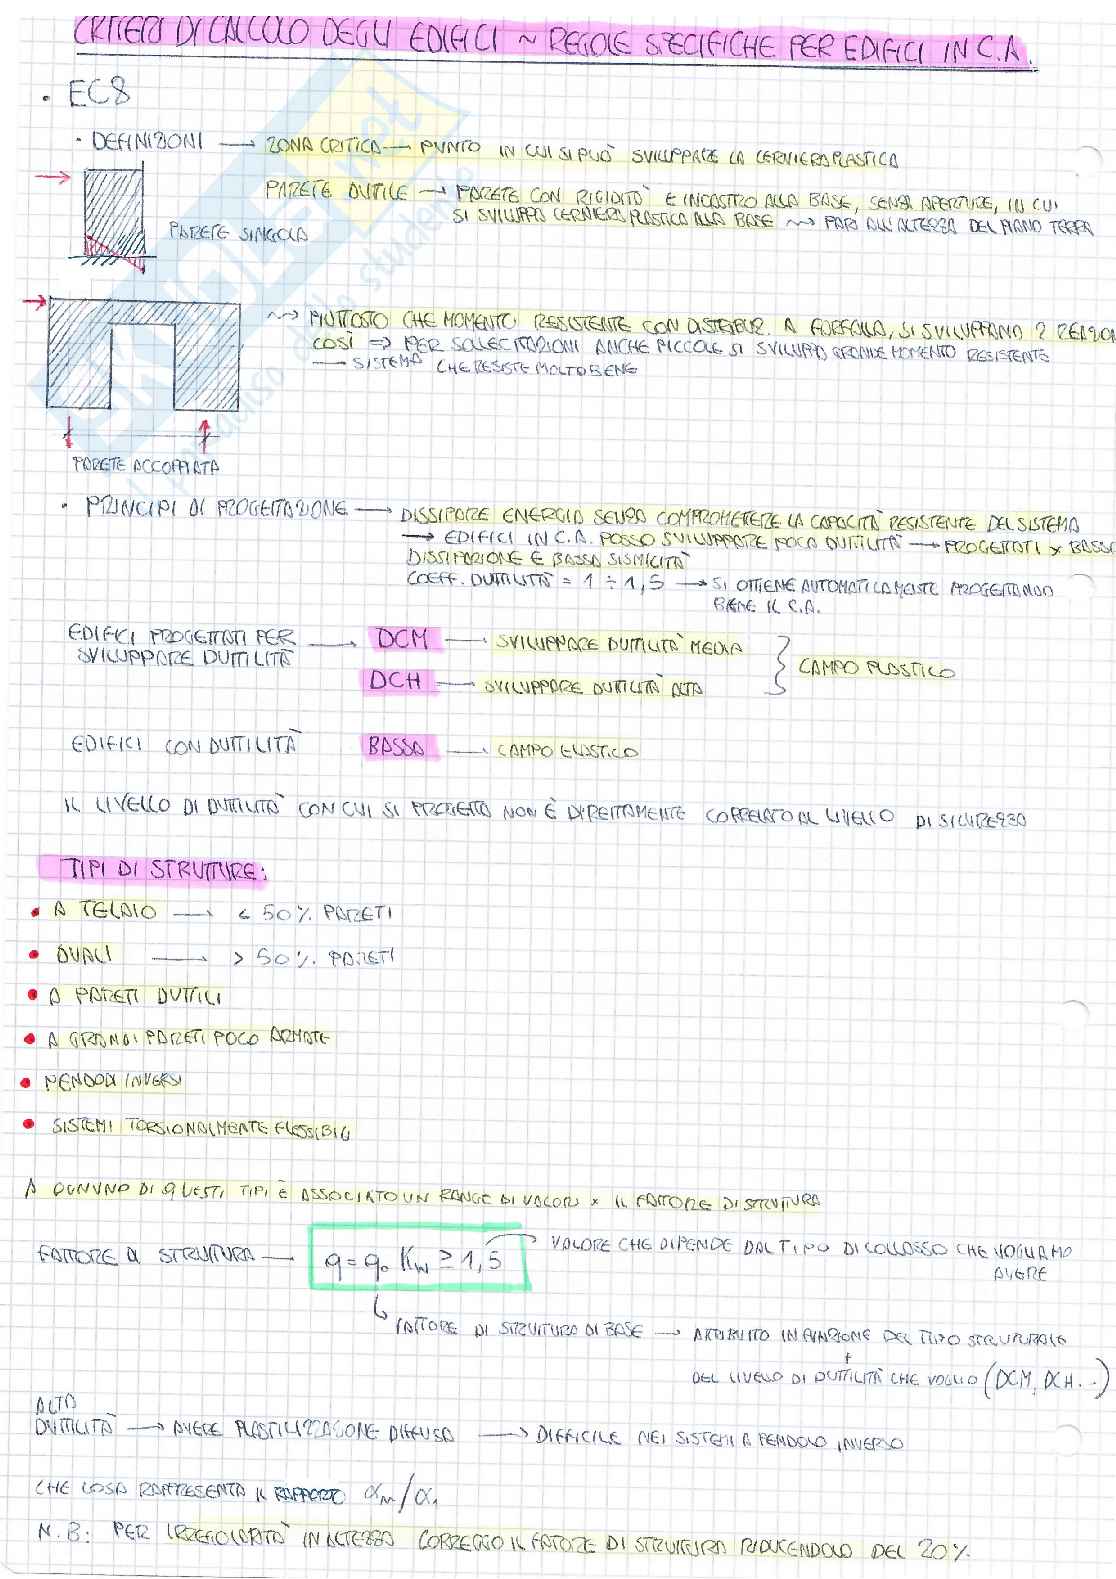 CRITERI DI CALCOLO DEGLI EDIFICI ~ REGOLE SPECIFICHE PER EDIFICI IN C.A.
• EC8
• DEFINIZIONI → ZONA CRITICA → PUNTO IN CUI SI PUÒ SVILUPPARE LA CERNIERA PLASTICA
PARETE DUTTILE → PARETE CON RIGIDITÀ E INCASTRO ALLA BASE, SENZA APERTURE, IN CUI
SI SVILUPPA CERNIERA PLASTICA ALLA BASE ⇝ PARI ALL'ALTEZZA DEL PIANO TERRA
PARETE SINGOLA
⇝ PIUTTOSTO CHE MOMENTO RESISTENTE CON DISTRIBUZ. A FARFALLA, SI SVILUPPANO 2 REAZION
COSÌ ⇒ PER SOLLECITAZIONI ANCHE PICCOLE SI SVILUPPA GRANDE MOMENTO RESISTENTE
→ SISTEMA CHE RESISTE MOLTO BENE
PARETE ACCOPPIATA
• PRINCIPI DI PROGETTAZIONE → DISSIPARE ENERGIA SENZA COMPROMETTERE LA CAPACITÀ RESISTENTE DEL SISTEMA
→ EDIFICI IN C.A. POSSO SVILUPPARE POCA DUTTILITÀ → PROGETTATI x BASSA
DISSIPAZIONE E BASSA SISMICITÀ
COEFF. DUTTILITÀ = 1 ÷ 1,5 → SI OTTIENE AUTOMATICAMENTE PROGETTANDO
BENE IL C.A.
EDIFICI PROGETTATI PER
SVILUPPARE DUTTILITÀ → DCM → SVILUPPARE DUTTILITÀ MEDIA
DCH → SVILUPPARE DUTTILITÀ ALTA
} CAMPO PLASTICO
EDIFICI CON DUTTILITÀ BASSA → CAMPO ELASTICO
IL LIVELLO DI DUTTILITÀ CON CUI SI PROGETTA NON È DIRETTAMENTE CORRELATO AL LIVELLO DI SICUREZZA
TIPI DI STRUTTURE:
• A TELAIO → < 50% PARETI
• DUALI → > 50% PARETI
• A PARETI DUTTILI
• A GRANDI PARETI POCO ARMATE
• PENDOLI INVERSI
• SISTEMI TORSIONALMENTE FLESSIBILI
A OGNUNO DI QUESTI TIPI È ASSOCIATO UN RANGE DI VALORI x IL FATTORE DI STRUTTURA
FATTORE DI STRUTTURA → q = q₀ Kw ≥ 1,5 → VALORE CHE DIPENDE DAL TIPO DI COLLASSO CHE VOGLIAMO
AVERE
FATTORE DI STRUTTURA DI BASE → ATTRIBUITO IN FUNZIONE DEL TIPO STRUTTURALE
+
DEL LIVELLO DI DUTTILITÀ CHE VOGLIO (DCM, DCH..)
ALTA
DUTTILITÀ → AVERE PLASTICIZZAZIONE DIFFUSA → DIFFICILE NEI SISTEMI A PENDOLO INVERSO
CHE COSA RAPPRESENTA IL RAPPORTO αu/α1
N.B: PER IRREGOLARITÀ IN ALTEZZA CORREGGO IL FATTORE DI STRUTTURA RIDUCENDOLO DEL 20%